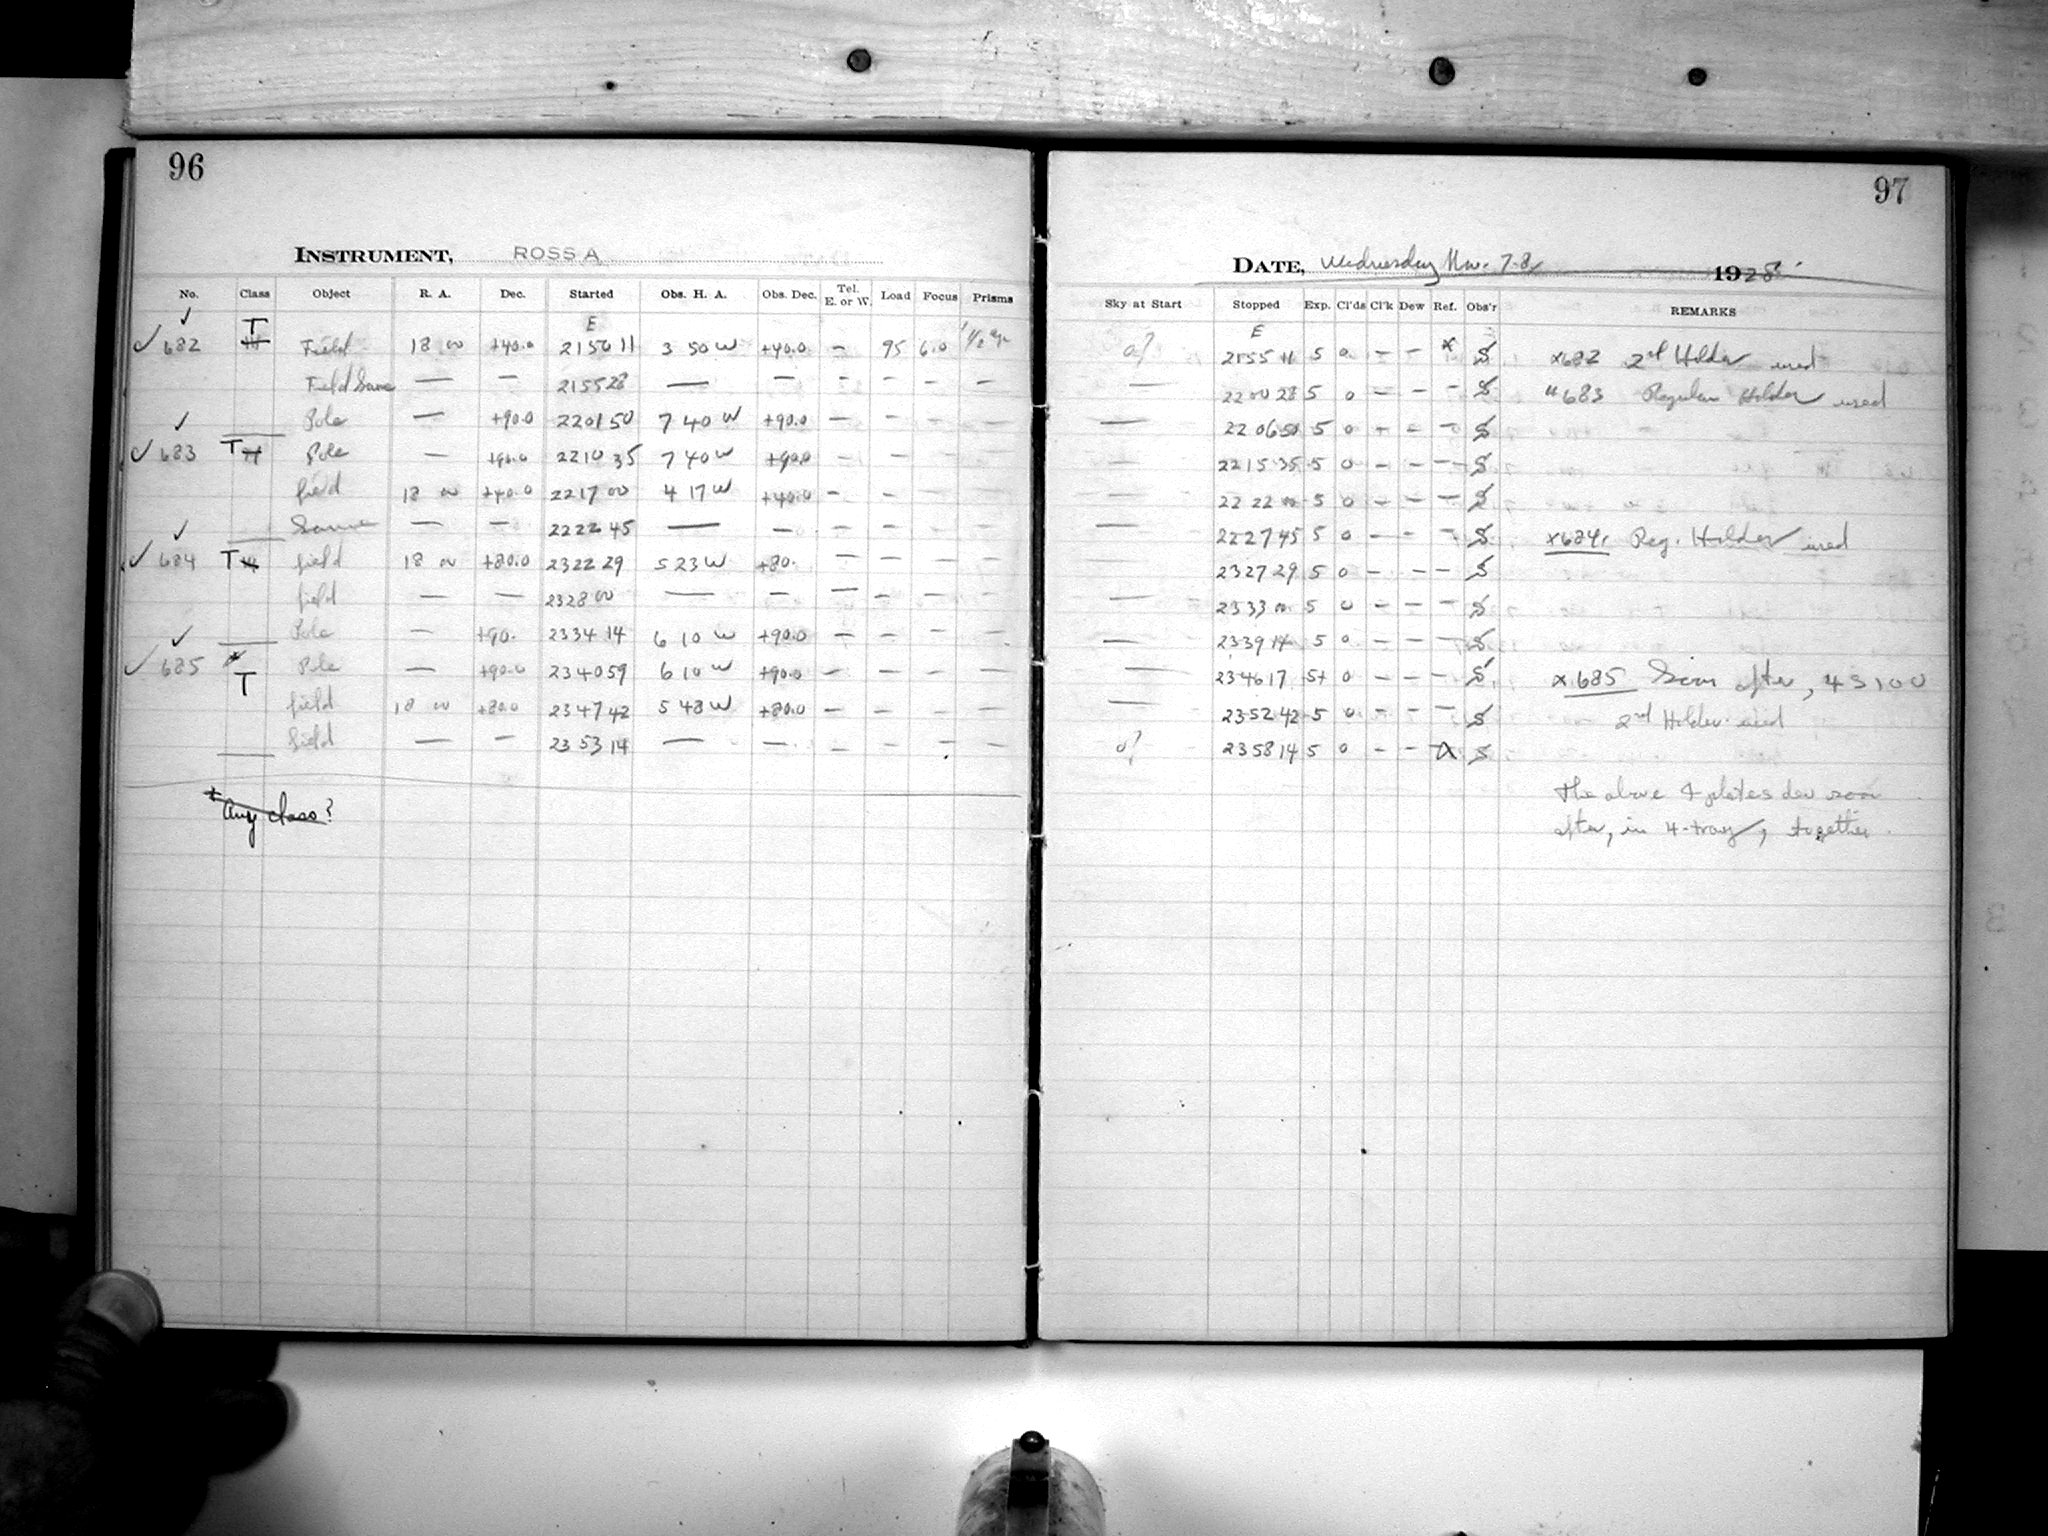 96
INSTRUMENT, ROSS A
No. Class Object R. A. Dec. Started Obs. H. A. Obs. Dec. Tel. E. or W. Load Focus Prisms
E
✓ 682 T Field 18 00 +40.0 21 50 11 3 50 W +40.0 — 95 6.0
Field Same — — 21 55 28 — — — — — —
Pole — +90.0 22 01 50 7 40 W +90.0 — — — —
✓ 683 T H Pole — +90.0 22 10 35 7 40 W +90.0 — — — —
field 18 00 +40.0 22 17 00 4 17 W +40.0 — — — —
Same — — 22 22 45 — — — — — —
✓ 684 T H field 18 00 +80.0 23 22 29 5 23 W +80. — — — —
field — — 23 28 00 — — — — — —
Pole — +90. 23 34 14 6 10 W +90.0 — — — —
✓ 685 * T Pole — +90.0 23 40 59 6 10 W +90.0 — — — —
field 18 00 +80.0 23 47 42 5 48 W +80.0 — — — —
field — — 23 53 14 — — — — — —
* Any class?
97
DATE, Wednesday Nov. 7-8, 1928
Sky at Start Stopped Exp. Cl'ds Cl'k Dew Ref. Obs'r REMARKS
E
21 55 11 5 0 — — x S x682 2nd Holder used
— 22 00 28 5 0 — — — S "683 Regular Holder used
— 22 06 50 5 0 — — — S
— 22 15 35 5 0 — — — S
— 22 22 00 5 0 — — — S
— 22 27 45 5 0 — — — S x684. Reg. Holder used
— 23 27 29 5 0 — — — S
— 23 33 00 5 0 — — — S
— 23 39 14 5 0 — — — S
— 23 46 17 5+ 0 — — — S x685 after,
— 23 52 42 5 0 — — — S 2nd Holder used
23 58 14 5 0 — — S
The above 4 plates dev soon
after, in 4-tray, together.